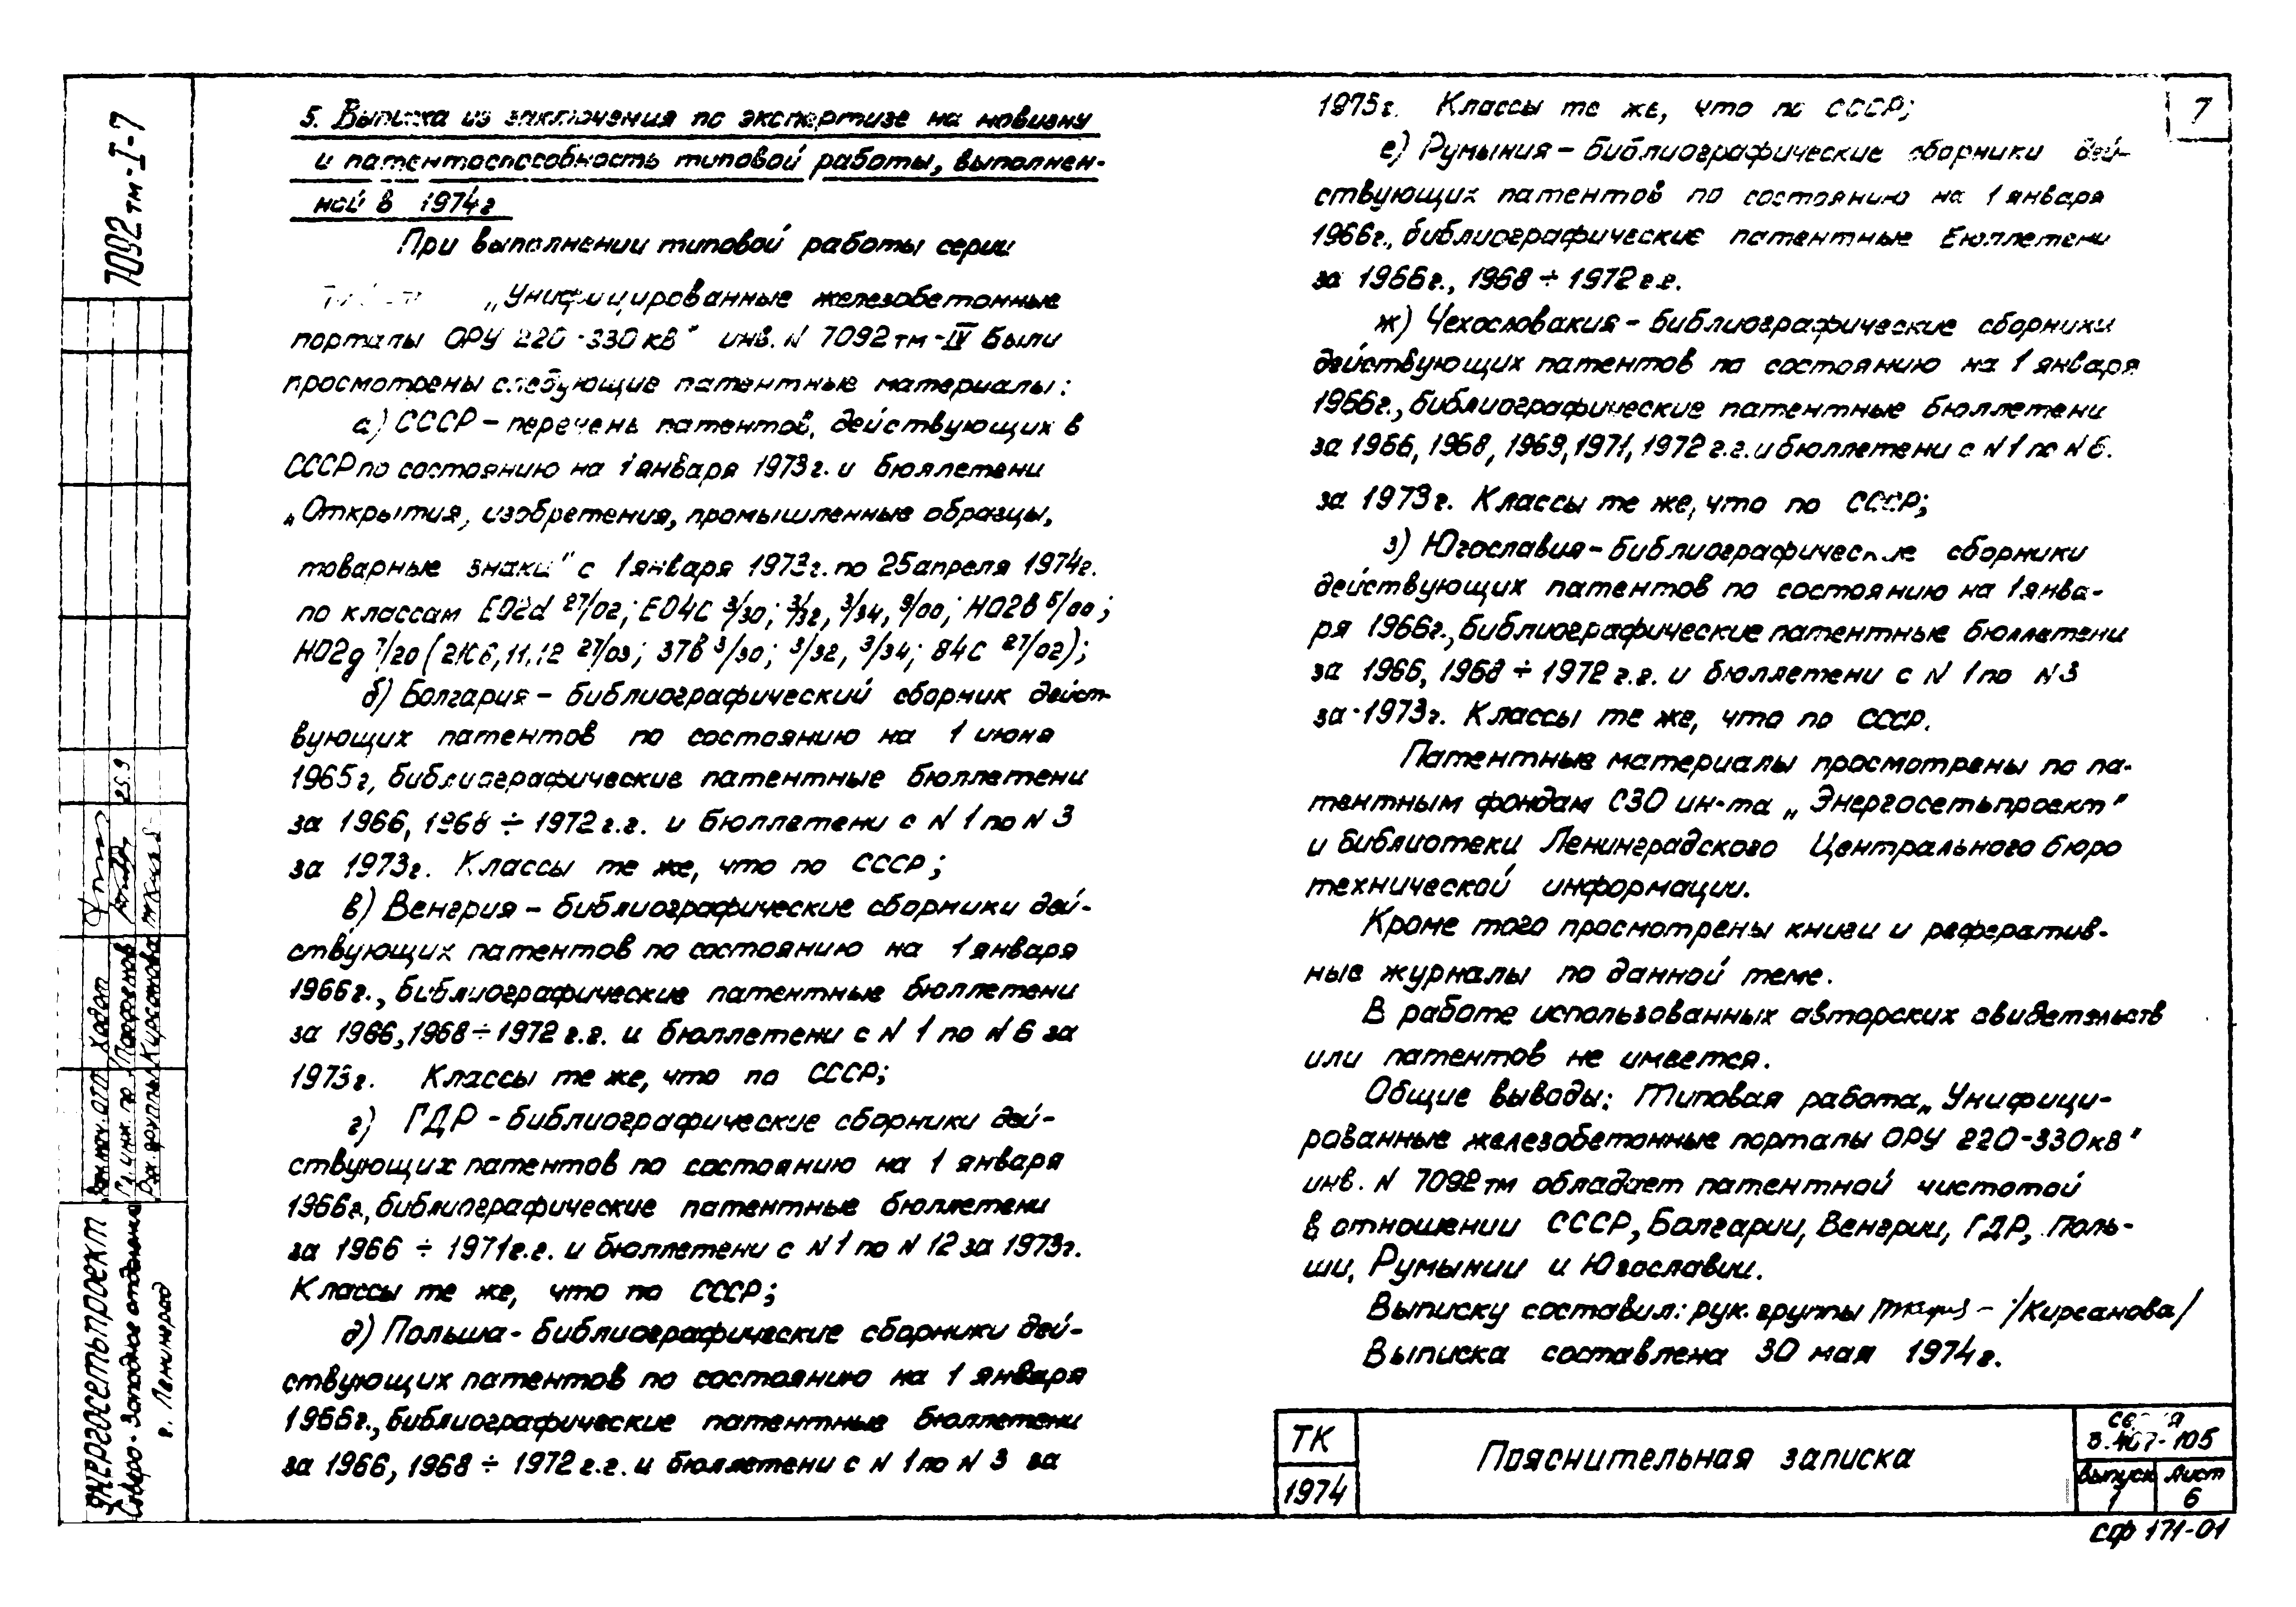 5. Выписка из заключения по экспертизе на новизну
и патентоспособность типовой работы, выполнен-
ной в 1974г
При выполнении типовой работы серии
„Унифицированные железобетонные
порталы ОРУ 220-330 кв" инв. N 7092тм-IV были
просмотрены следующие патентные материалы:
а) СССР – перечень патентов, действующих в
СССР по состоянию на 1 января 1973г. и бюллетени
„Открытия, изобретения, промышленные образцы,
товарные знаки" с 1 января 1973г. по 25 апреля 1974г.
по классам E02d 27/02; E04C 3/30; 3/32, 3/34, 9/00; H02B 5/00;
H02g 7/20 (21С 6,11,12 27/03; 37в 3/30; 3/32, 3/34; 84с 27/02);
б) Болгария – библиографический сборник дейст-
вующих патентов по состоянию на 1 июня
1965г, библиографические патентные бюллетени
за 1966, 1968 ÷ 1972г.г. и бюллетени с N 1 по N 3
за 1973г. Классы те же, что по СССР;
в) Венгрия – библиографические сборники дей-
ствующих патентов по состоянию на 1 января
1966г., библиографические патентные бюллетени
за 1966, 1968 ÷ 1972г.г. и бюллетени с N 1 по N 6 за
1973г. Классы те же, что по СССР;
г) ГДР – библиографические сборники дей-
ствующих патентов по состоянию на 1 января
1966г., библиографические патентные бюллетени
за 1966 ÷ 1971г.г. и бюллетени с N 1 по N 12 за 1973г.
Классы те же, что по СССР;
д) Польша - библиографические сборники дей-
ствующих патентов по состоянию на 1 января
1966г., библиографические патентные бюллетени
за 1966, 1968 ÷ 1972г.г. и бюллетени с N 1 по N 3 за
1973г. Классы те же, что по СССР;
е) Румыния – библиографические сборники дей-
ствующих патентов по состоянию на 1 января
1966г., библиографические патентные бюллетени
за 1966г., 1968 ÷ 1972г.г.
ж) Чехословакия – библиографические сборники
действующих патентов по состоянию на 1 января
1966г., библиографические патентные бюллетени
за 1966, 1968, 1969, 1971, 1972г.г. и бюллетени с N 1 по N 6.
за 1973г. Классы те же, что по СССР;
з) Югославия – библиографические сборники
действующих патентов по состоянию на 1 янва-
ря 1966г., библиографические патентные бюллетени
за 1966, 1968 ÷ 1972г.г. и бюллетени с N 1 по N 3
за 1973г. Классы те же, что по СССР.
Патентные материалы просмотрены по па-
тентным фондам СЗО ин-та „Энергосетьпроект"
и библиотеки Ленинградского Центрального бюро
технической информации.
Кроме того просмотрены книги и рефератив-
ные журналы по данной теме.
В работе использованных авторских свидетельств
или патентов не имеется.
Общие выводы: Типовая работа „Унифици-
рованные железобетонные порталы ОРУ 220-330кв"
инв. N 7092тм обладает патентной чистотой
в отношении СССР, Болгарии, Венгрии, ГДР, Поль-
ши, Румынии и Югославии.
Выписку составил: рук. группы /Кирсанова/
Выписка составлена 30 мая 1974г.
7
ТК
1974
Пояснительная записка
серия
3.407-105
Выпуск
1
лист
6
СФ 171-01
7092тм-I-7
25.9
Ходот
Кирсанова
Гл. инж. пр.
Рук. группы
Энергосетьпроект
Северо-Западное отделение
г. Ленинград